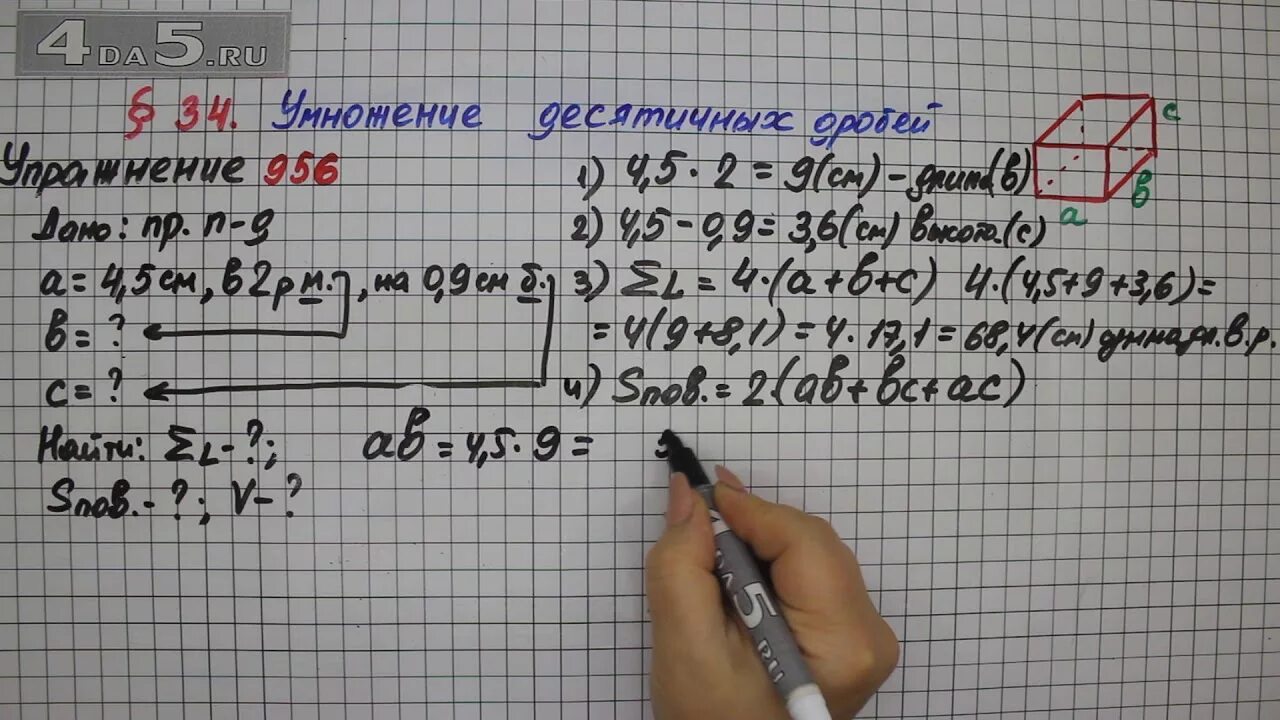 4DA5.RU
§ 34. Умножение десятичных дробей
Упражнение 956
Дано: пр. п-д
a = 4,5 см, в 2 р м., на 0,9 см б.
в = ?
c = ?
Найти: ΣL - ?;
Sпов. - ?; V - ?
1) 4,5 · 2 = 9 (см) - длина (в)
2) 4,5 - 0,9 = 3,6 (см) высота (с)
3) ΣL = 4·(a+в+c) 4·(4,5+9+3,6) =
= 4(9+8,1) = 4·17,1 = 68,4 (см) сумма дл. в. р.
4) Sпов. = 2·(aв+вc+ac)
aв = 4,5·9 =
a
в
c
DA5.RU